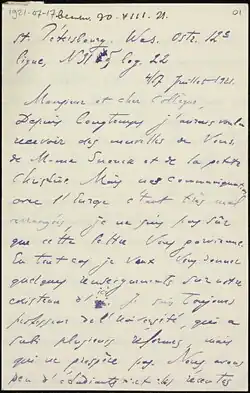 1921-07-17
01
St Pétersbourg. Was. Ostr. 12e
ligne, N 31 log. 22
4/17 Juillet 1921.
Monsieur et cher Collègue,
Depuis longtemps j'aurais voulu
recevoir des nouvelles de Vous,
de M-me Snouck et de la petite
Christine. Mais nos communications
avec l'étranger étant très mal
je ne suis pas sûr
que cette lettre Vous parvienne.
En tout cas je veux Vous donner
quelques renseignements sur notre
existence d'ici. Je suis toujours
professeur de l'Université, qui a
subi plusieurs réformes, mais
qui ne prospère pas. Nous avons
peu d'étudiants et les